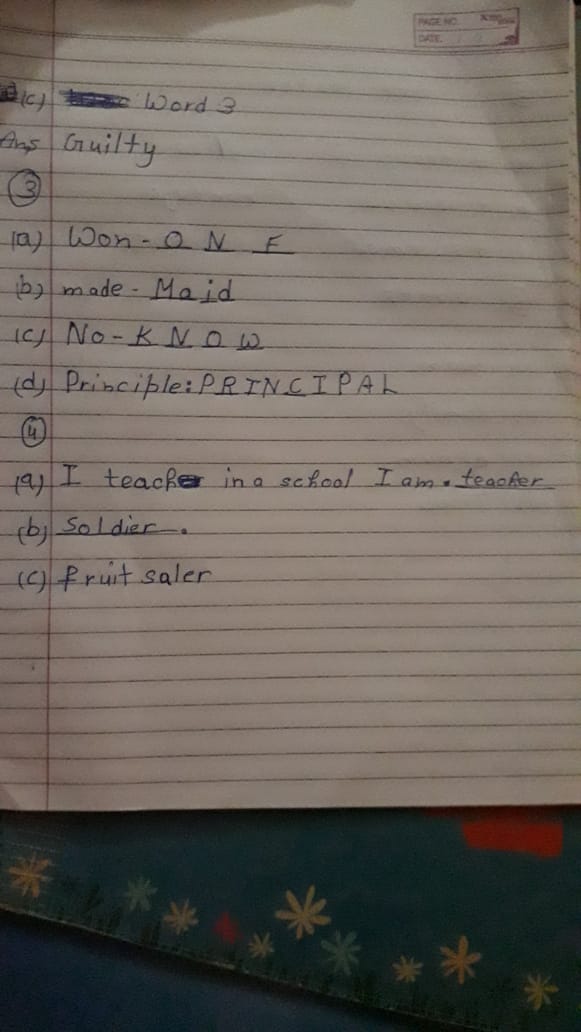 PAGE NO.
DATE.
(c) Word 3
Ans Guilty
(3)
(a) Won - O N E
(b) made - Maid
(c) No - K N O W
(d) Principle: P R I N C I P A L
(4)
(a) I teach in a school I am . teacher
(b) Soldier .
(c) fruit saler